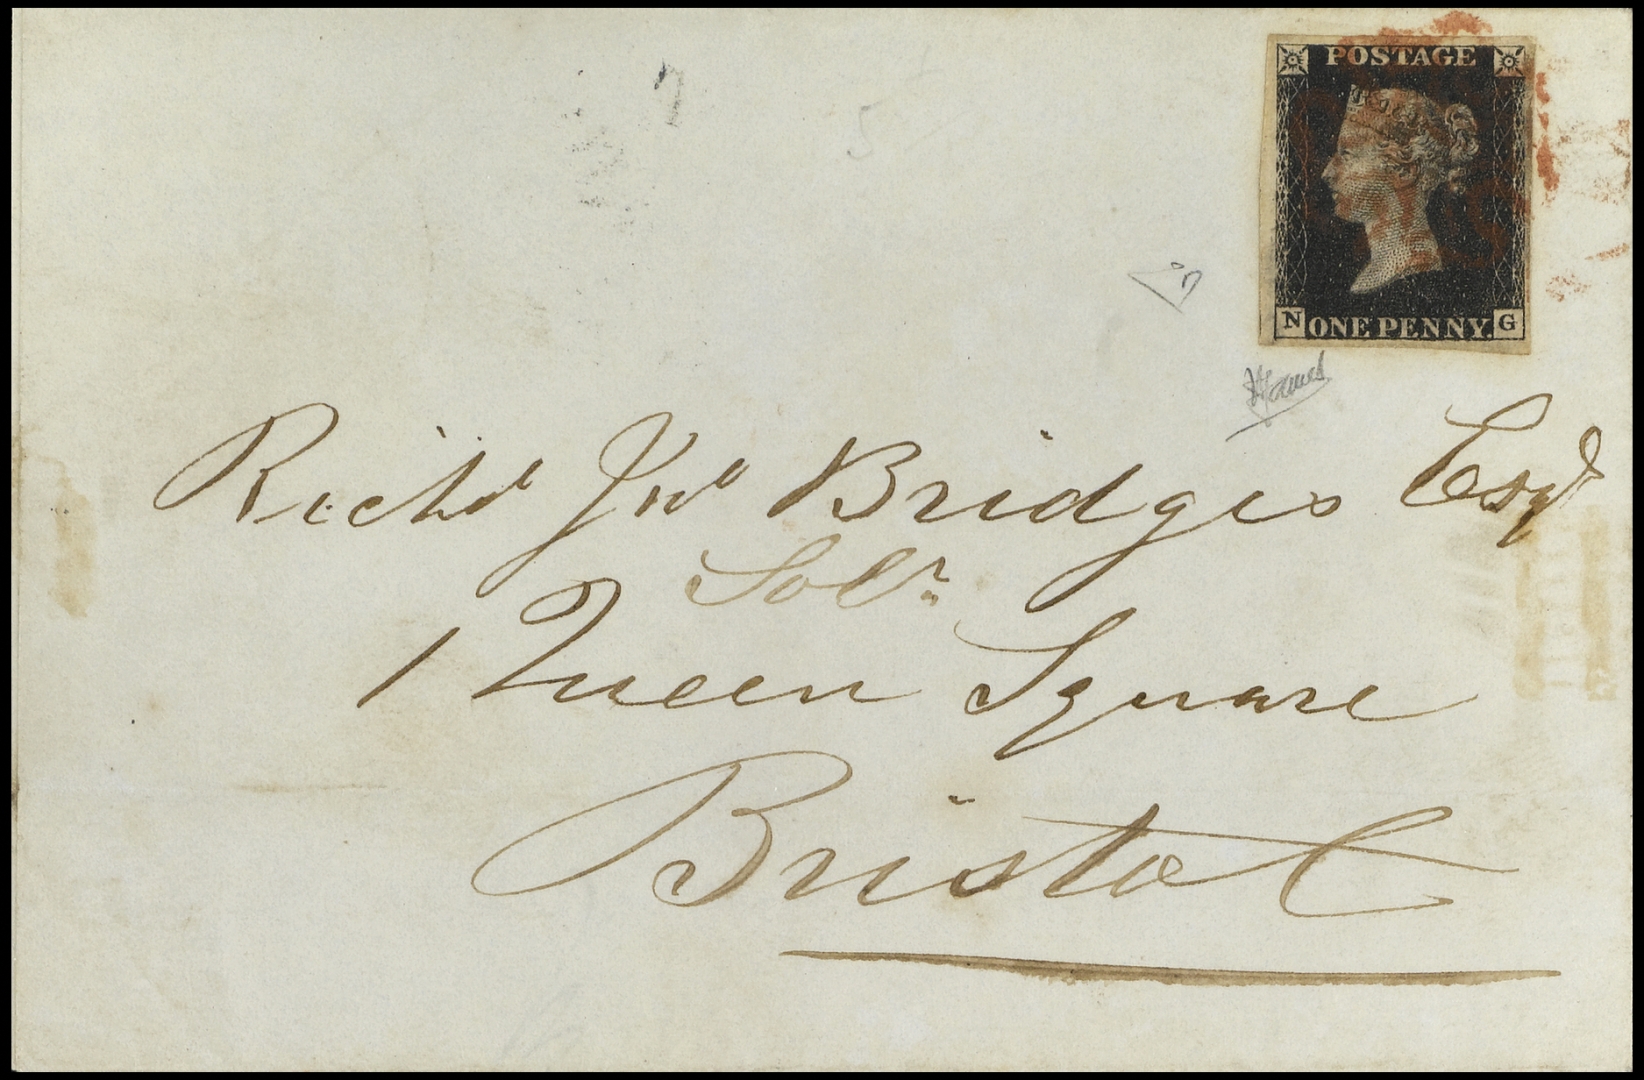 POSTAGE
N ONE PENNY. G
Richd Jno Bridges Esqr
Solr
1 Queen Square
Bristol